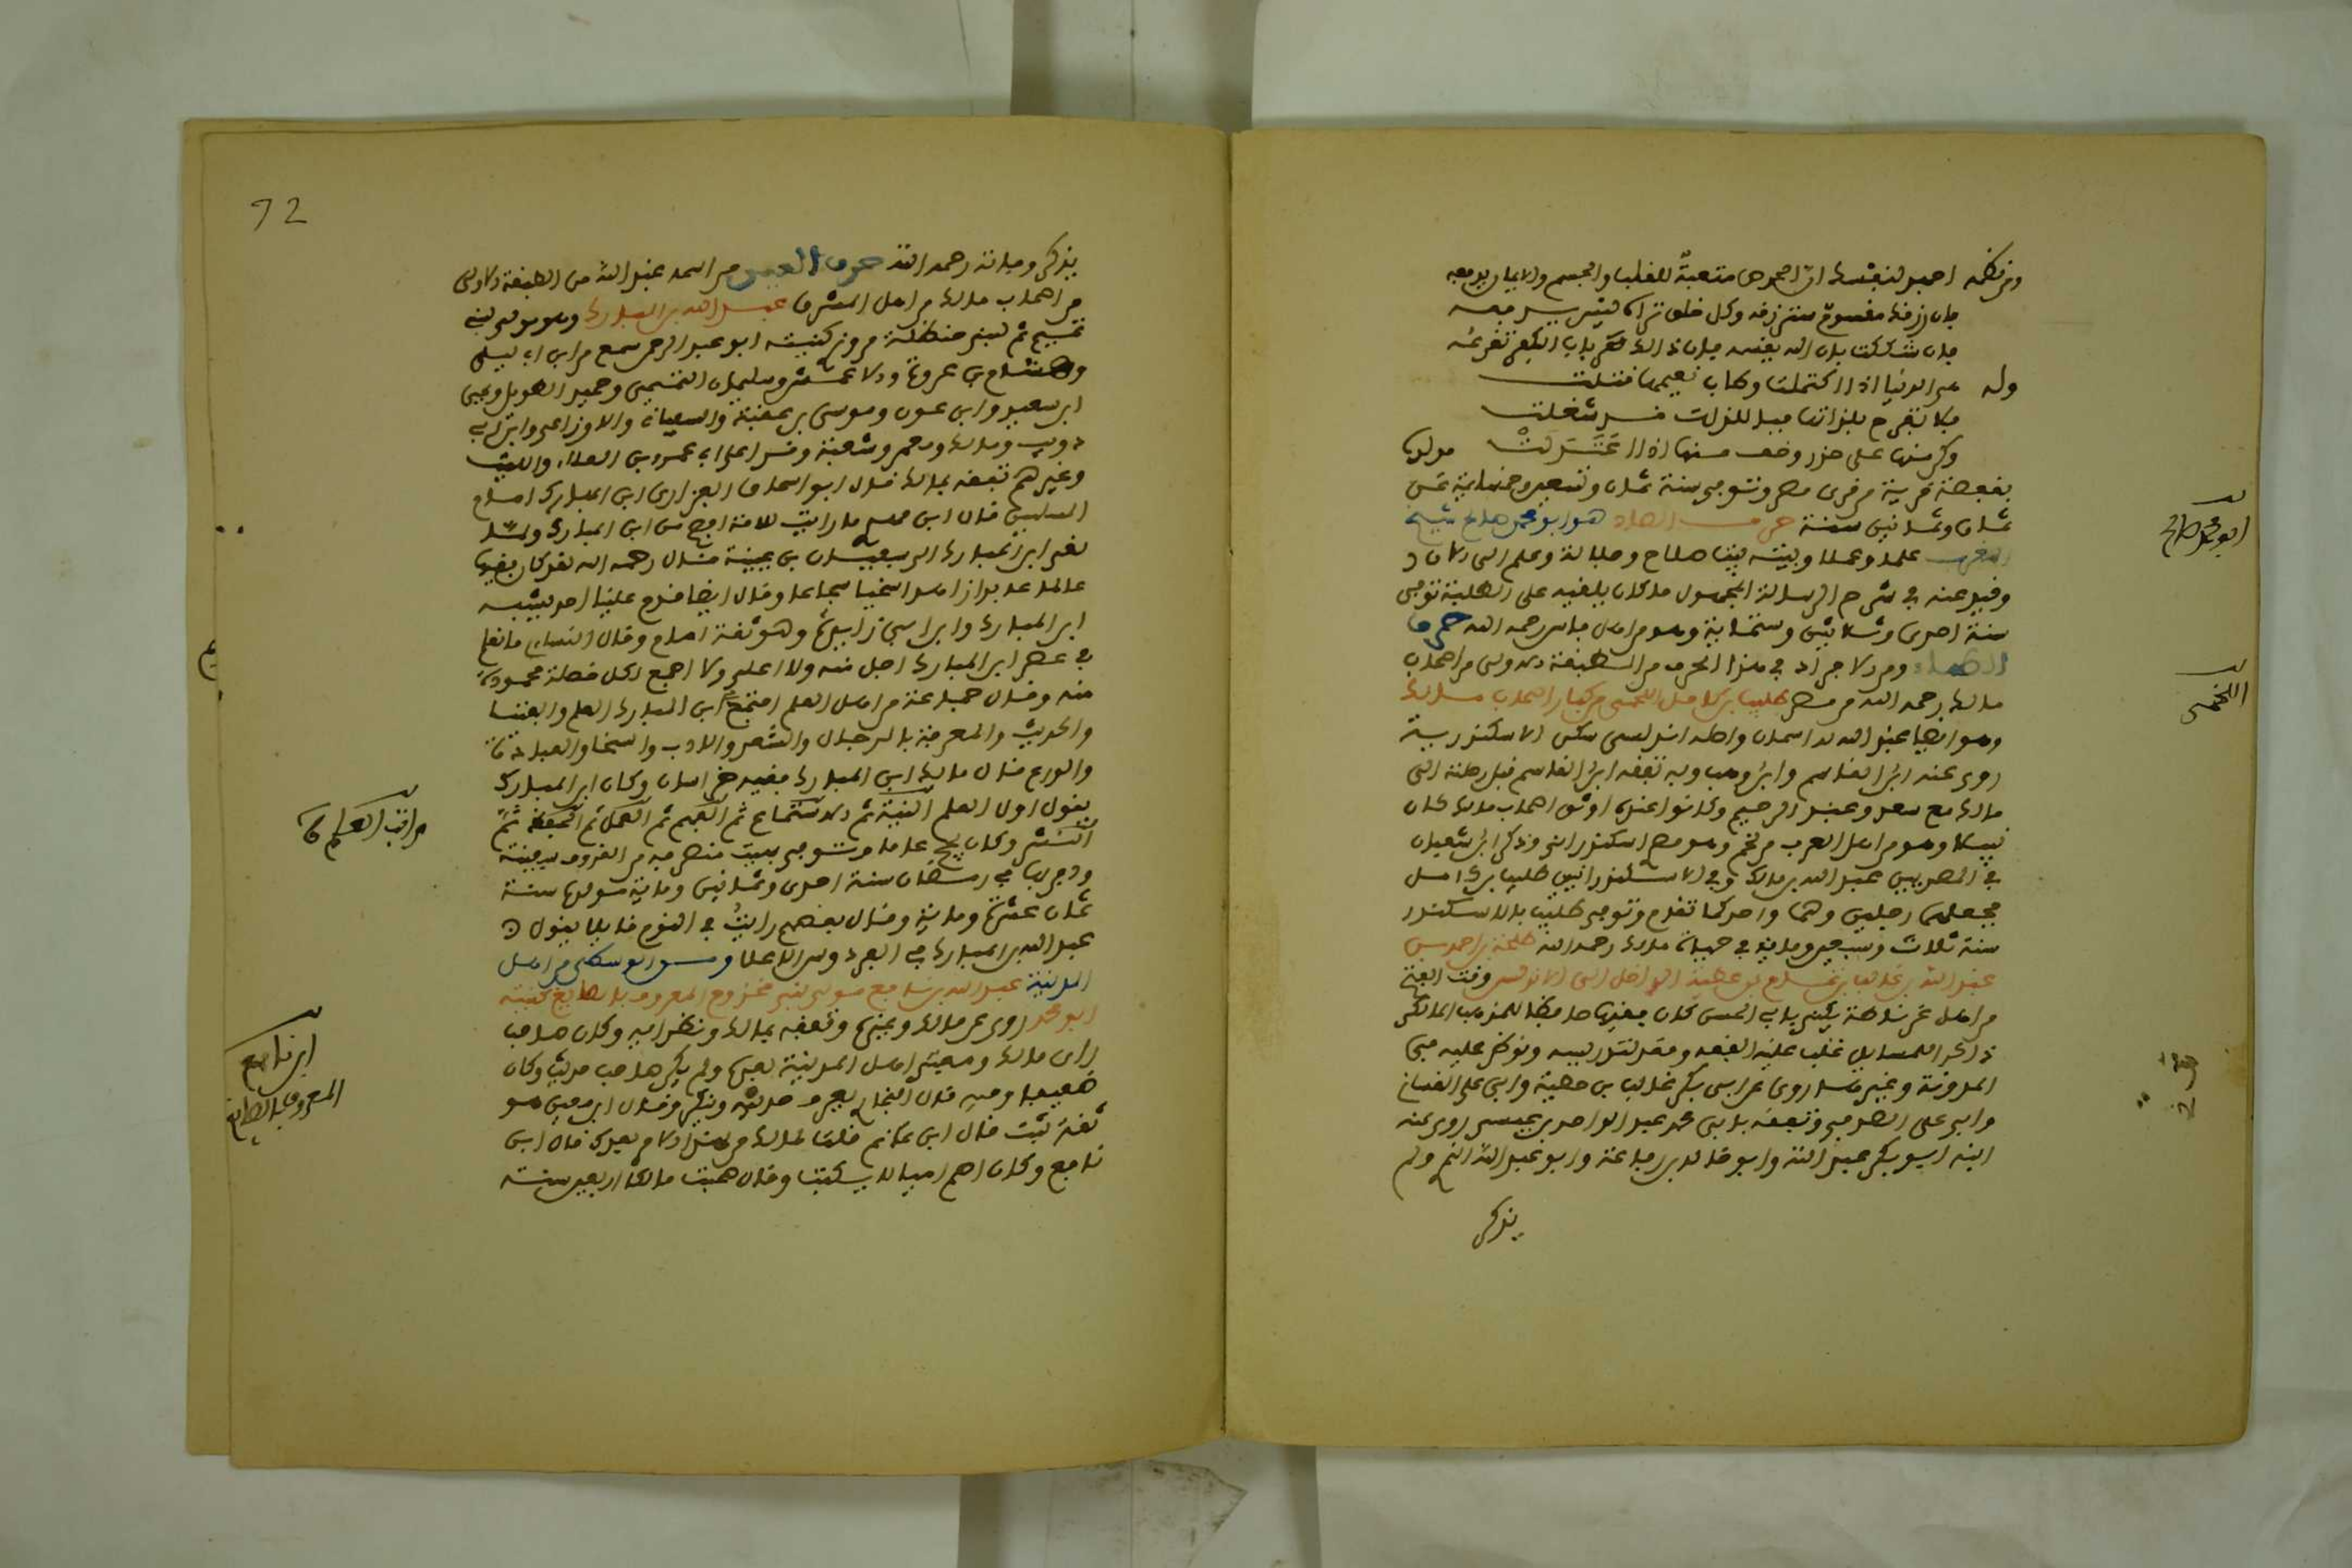 ومن نظمه احبو لنفسك ان الحرص متعبة للقلب والجسم والايمان يرفعه
فان رزقك مقسوم سترزقه وكل خلق تراه ليس يدفعه
فان شككت بان الله يقسمه فان ذلك باب الكفر تقرعه
وله هي الدنيا اذا اكتملت وطاب نعيمها قتلت
فلا تفرح بلذاتها فبا للذات قد شغلت
وكن منها على حذر وخف منها اذا اعتدلت مولده
بقفصة قرية من قرى وتوفي سنة ثمان وتسعين وخمسمائة عن
ثمان وثمانين سنة حرف الصاد هو ابو محمد صالح شيخ
المغرب علما وعملا وبيته بيت صلاح وجلالة وعلم الى الان
وقيد عنه في شرح الرسالة المجموع ما كان يلقيه على الطلبة توفي
سنة احدى وثلاثين وستمائة وهو من اهل فاس رحمه الله حرف
الطاء ومن الافراد في هذا الحرف من الطبقة الاولى من اصحاب
مالك رحمه الله من مصر طليب بن كامل اللخمي من كبار اصحاب مالك
وهو ايضا عبد الله له اسمان واصله اندلسي سكن الاسكندرية
روى عنه ابن القاسم وابن وهب وبه تفقه ابن القاسم قبل رحلته الى
مالك مع سعد وعبد الرحيم وكانوا عنده اوثق اصحاب مالك كان
نبيلا وهو من اهل العرب من لخم وهو مصر اسكندراني وذكر ابن شعبان
في المصريين عبد الله بن مالك وفي الاسكندرانيين طليب بن كامل
فجعلهما رجلين وهما واحد كما تقدم وتوفي طليب بالاسكندرية
سنة ثلاث وسبعين ومائة في حياة مالك رحمه الله طلحة بن احمد بن
عبد الله بن غالب بن تمام بن عطية الداخل الى الاندلس وقت الفتح
من اهل غرناطة يكنى بابي الحسن كان فقيها حافظا لمذهب المالكي
ذاكرا للمسائل غلب عليه الفقه وقعد لتدريسه ونوظر عليه في
المدونة وغيرها روى عن ابي بكر غالب بن عطية وابي علي الغساني
وابي علي الصدفي وتفقه بابي محمد عبد الواحد بن عيسى روى عنه
ابنه ابو بكر عبد الله وابو خالد بن رفاعة وابو عبد الله النمري ولم
يذكر
ابو محمد صالح
اللخمي
72
يذكر وفاته رحمه الله حرف العين من اسمه عبد الله من الطبقة الاولى
من اصحاب مالك من اهل المشرق عبد الله بن المبارك وهو مولى لبني
تميم ثم لبني حنظلة مروزي كنيته ابو عبد الرحمن سمع من ابن ابي ليلى
وهشام بن عروة والاعمش وسليمان التيمي وحميد الطويل ويحيى
ابن سعيد وابن عون وموسى بن عقبة والسفيانين والاوزاعي وابن ابي
ذويب ومالك ومعمر وشعبة وقرا على ابي عمرو بن العلاء والليث
وغيرهم تفقه بمالك قال ابو اسحاق الفزاري ابن المبارك امام
المسلمين قال ابن مهدي ما رايت للامة انصح من ابن المبارك ولما
نعي ابن المبارك الى سفيان بن عيينة قال رحمه الله لقد كان فقيها
عالما عابدا زاهدا سخيا شجاعا وقال ايضا ما قدم علينا احد يشبه
ابن المبارك وابن ابي زايدة وهو ثقة امام وقال النسائي ما نعلم
في عصر ابن المبارك اجل منه ولا اعلى ولا اجمع لكل خصلة محمودة
منه وقال جماعة من اهل العلم اجتمع في ابن المبارك العلم والفتيا
والحديث والمعرفة بالرجال والشعر والادب والسخا والعبادة
والورع قال مالك ابن المبارك فقيه خراسان وكان ابن المبارك
يقول اول العلم النية ثم الاستماع ثم الفهم ثم العمل ثم الحفظ ثم
النشر وكان يحج عاما وتوفي بهيت منصرفه من الغزو مدينة
في رمضان سنة احدى وثمانين ومائة مولده سنة
ثمان عشرة ومائة وقال بعضهم رايت في النوم قايلا يقول
عبد الله بن المبارك في الفردوس الاعلا ومن الوسطى من اهل
المدينة عبد الله بن نافع مولى بني مخزوم المعروف بالصايغ كنيته
ابو محمد روى عن مالك وغيره وتفقه بمالك ونظرايه وكان صاحب
راي مالك ومفتي اهل المدينة بعده ولم يكن صاحب حديث وكان
ضعيفا وفيه قال البخاري يعرف حديثه وينكر وقال ابن معين هو
ثقة ثبت قال ابن غانم قلت لمالك من لهذا الامر بعدك قال ابن
نافع وكان اصم اميا لا يكتب وقال صحبت مالكا اربعين سنة
مراتب العلم
ابن نافع
المعروف بالصايغ